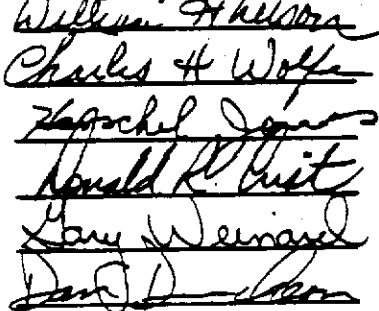 William H Wilson
Charles H Wolfe
Herschel Jones
Ronald R. Crist
Gary Weinard
Dan